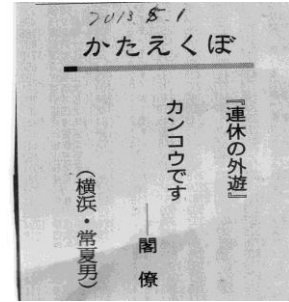 2013.5.1
かたえくぼ
『連休の外遊』
カンコウです
――閣僚
(横浜・常夏男)